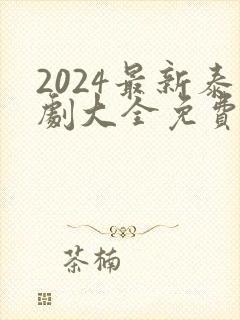 2024最新泰
劇大全免費
茶楠